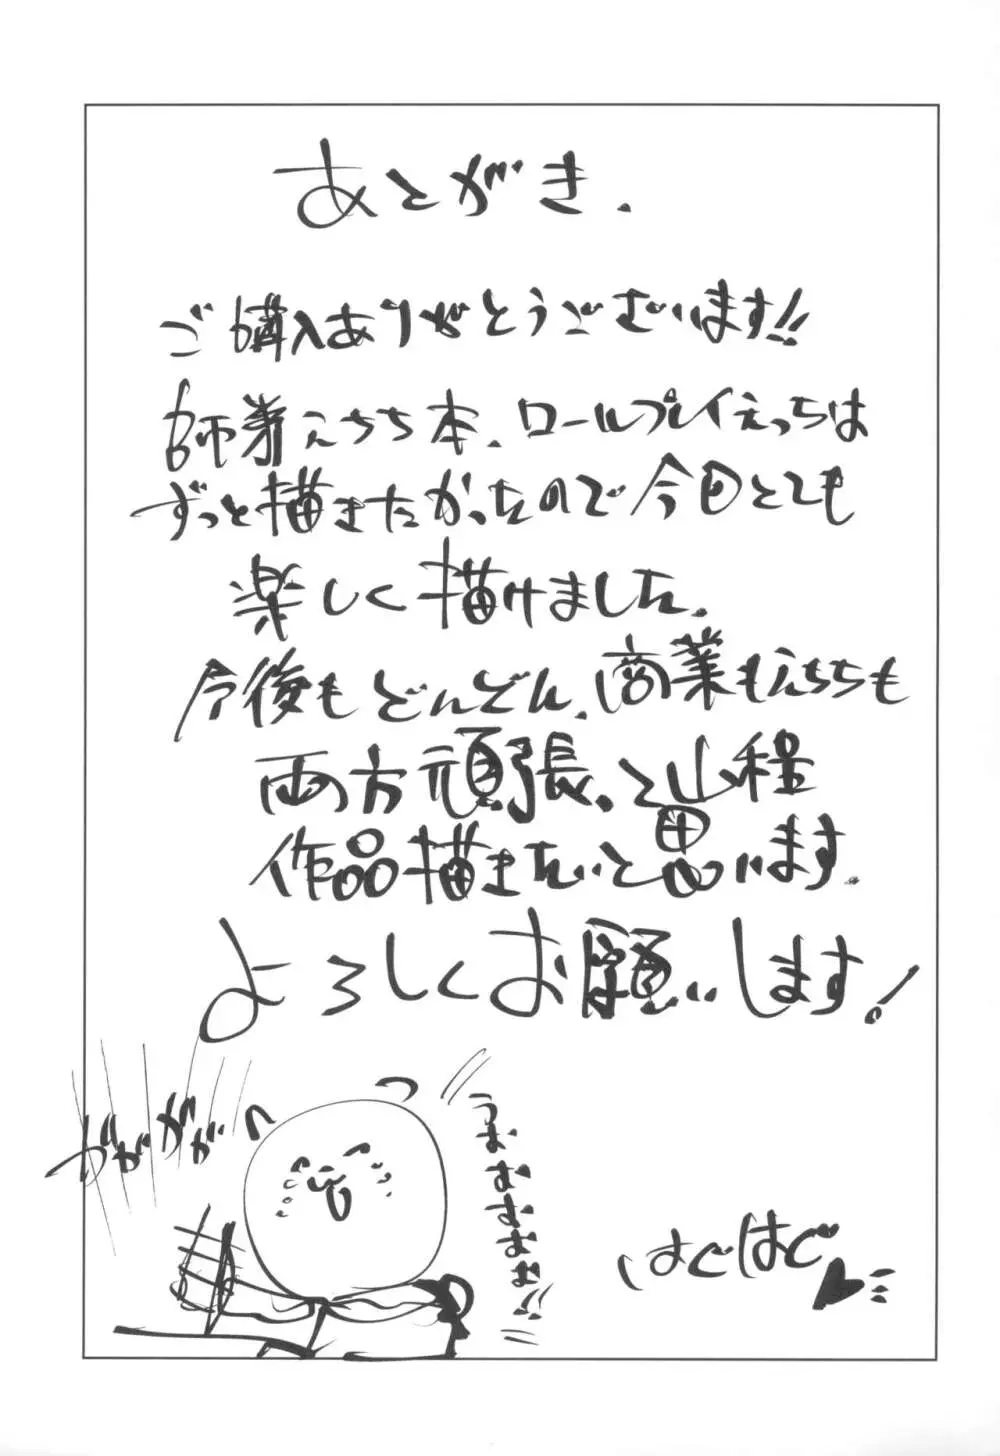 あとがき.
ご購入ありがとうございます!!
師弟えちち本、ロールプレイえっちは
ずっと描きたかったので今回とても
楽しく描けました。
今後もどんどん、商業もえちちも
両方頑張、て山程
作品描きたいと思います。
よろしくお願いします!
ががががが
うおおおおお
はぐはぐ